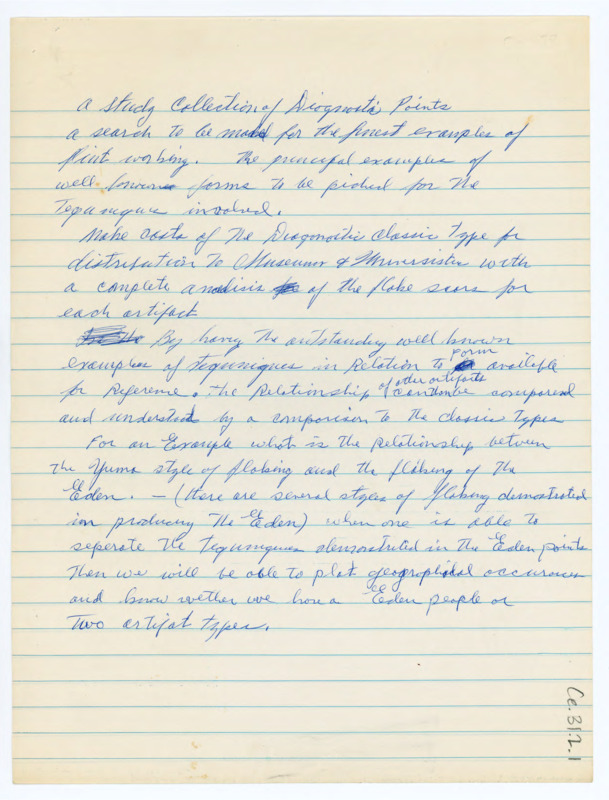 a study Collection of Diognostic Points
a search to be made for the finest examples of
flint working. The principal examples of
well known forms to be picked for the
Tequniques involved.
Make casts of The Diagonostic classic type for
distribution To Museums & Universities with
a complete analisis of the flake scars for
each artifact
By having The outstanding well known
examples of Tequniques in Relation to form available
for Reference. The Relationship of other artifacts can be compared
and understood by a comparison to the classic Types
For an Example what is the Relationship between
The Yuma style of flaking and the flaking of The
Eden. — (there are several styles of flaking demonstrated
in producing The Eden) when one is able to
seperate the Tequniques demonstrated in the Eden points
then we will be able to plot geographical occurances
and know wether we have Eden people or
Two artifat types.
Ce.31.2.1